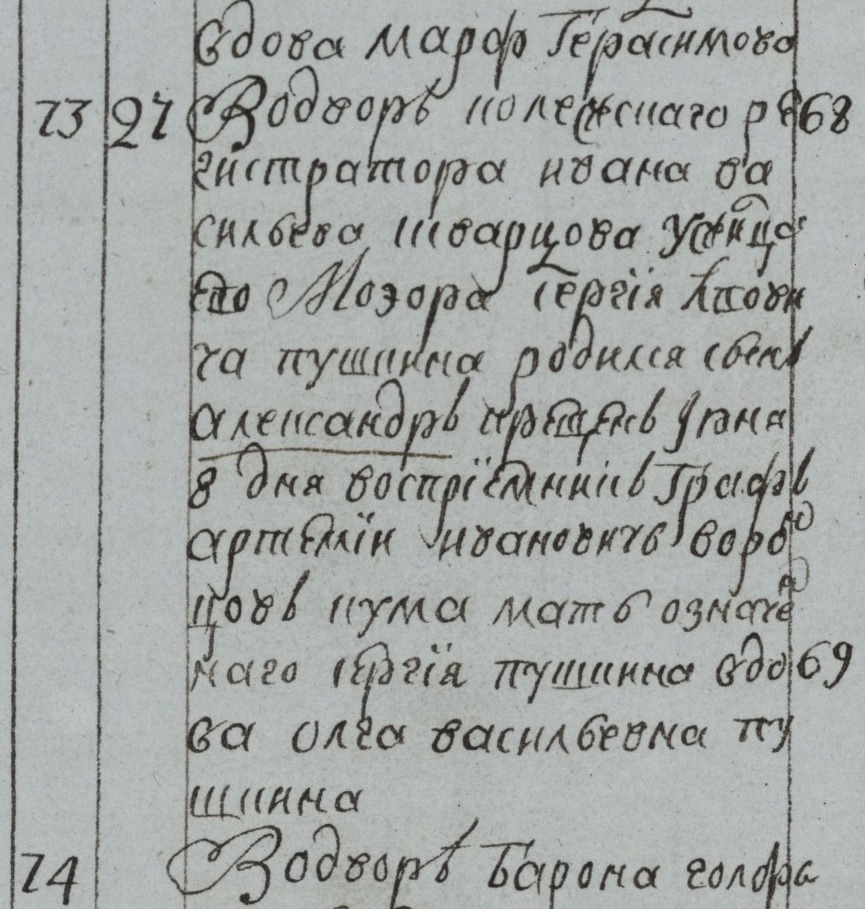 вдова Марфа Герасимова
73 27 Водворѣ колежскаго ре 68
гистратора ивана ва
сильева шварцова у жилца
ево Моэора Сергїя лвови
ча пушкина родился сынъ
александръ крещенъ июня
8 дня воспрїемникъ Графъ
артемїи ивановичь воро
цовъ кума мать означе
наго сергїя пушкина вдо 69
ва олга васильевна пу
шкина
74 Водворѣ Барона